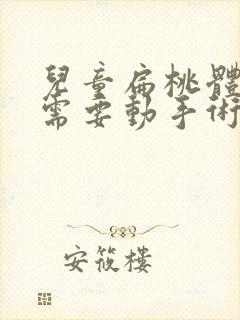 兒童扁桃體
需要動手術
安筱樓